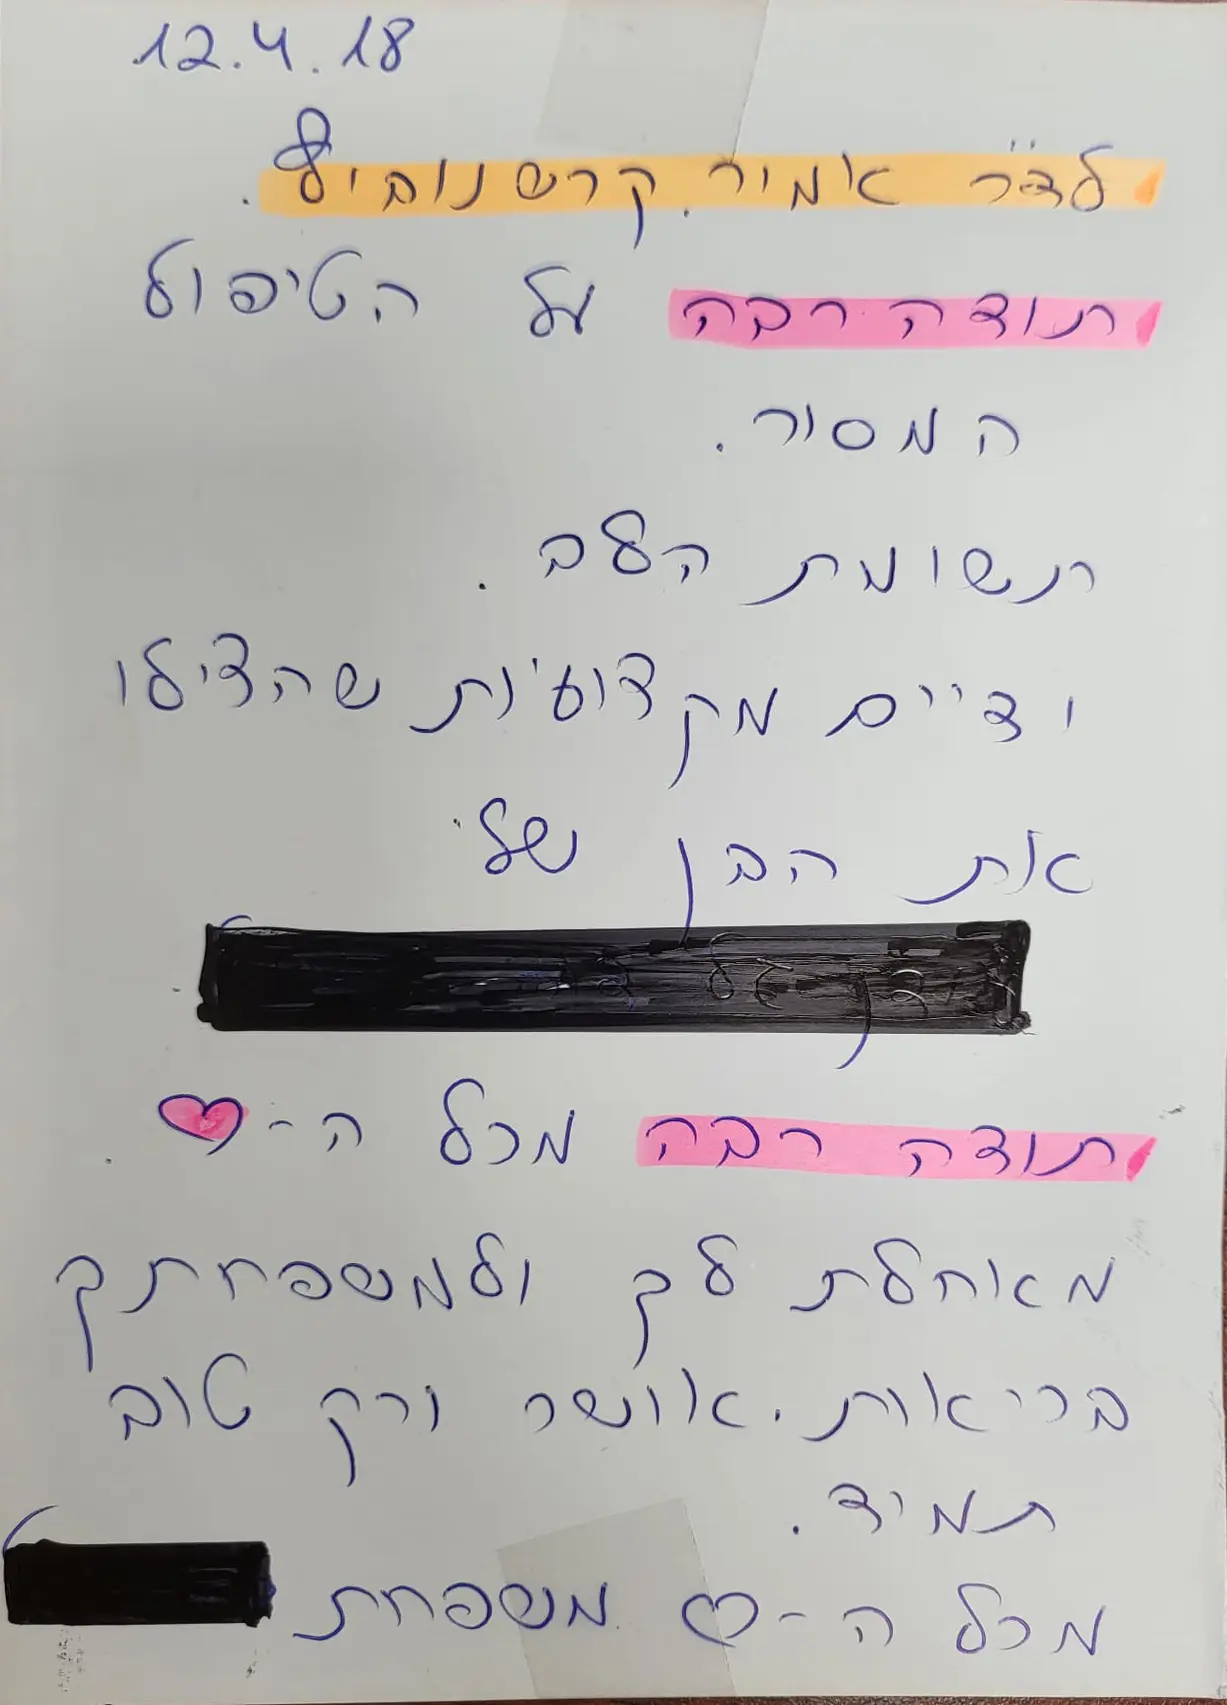 12.4.18
לד"ר אמיר קרשנוביץ.
תודה רבה על הטיפול
המסור.
תשומת הלב.
ידיים מקצועיות שהצילו
את הבן שלי
תודה רבה מכל ה-♥.
מאחלת לך ולמשפחתך
בריאות. אושר ורק טוב
תמיד.
מכל ה-♡ משפחת